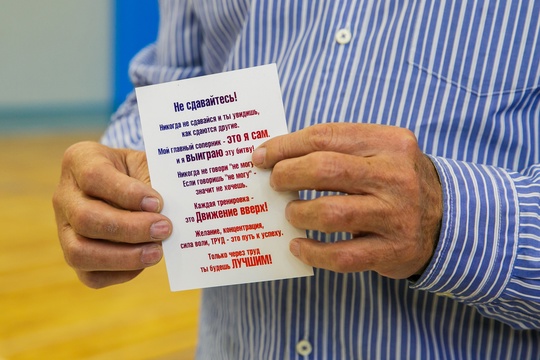 Не сдавайтесь!
Никогда не сдавайся и ты увидишь,
как сдаются другие.
Мой главный соперник - ЭТО Я САМ,
и я ВЫИГРАЮ эту битву!
Никогда не говори "не могу"
Если говоришь "не могу" -
значит не хочешь.
Каждая тренировка -
это ДВИЖЕНИЕ ВВЕРХ!
Желание, концентрация,
сила воли, ТРУД - это путь к успеху.
Только через труд
ты будешь ЛУЧШИМ!